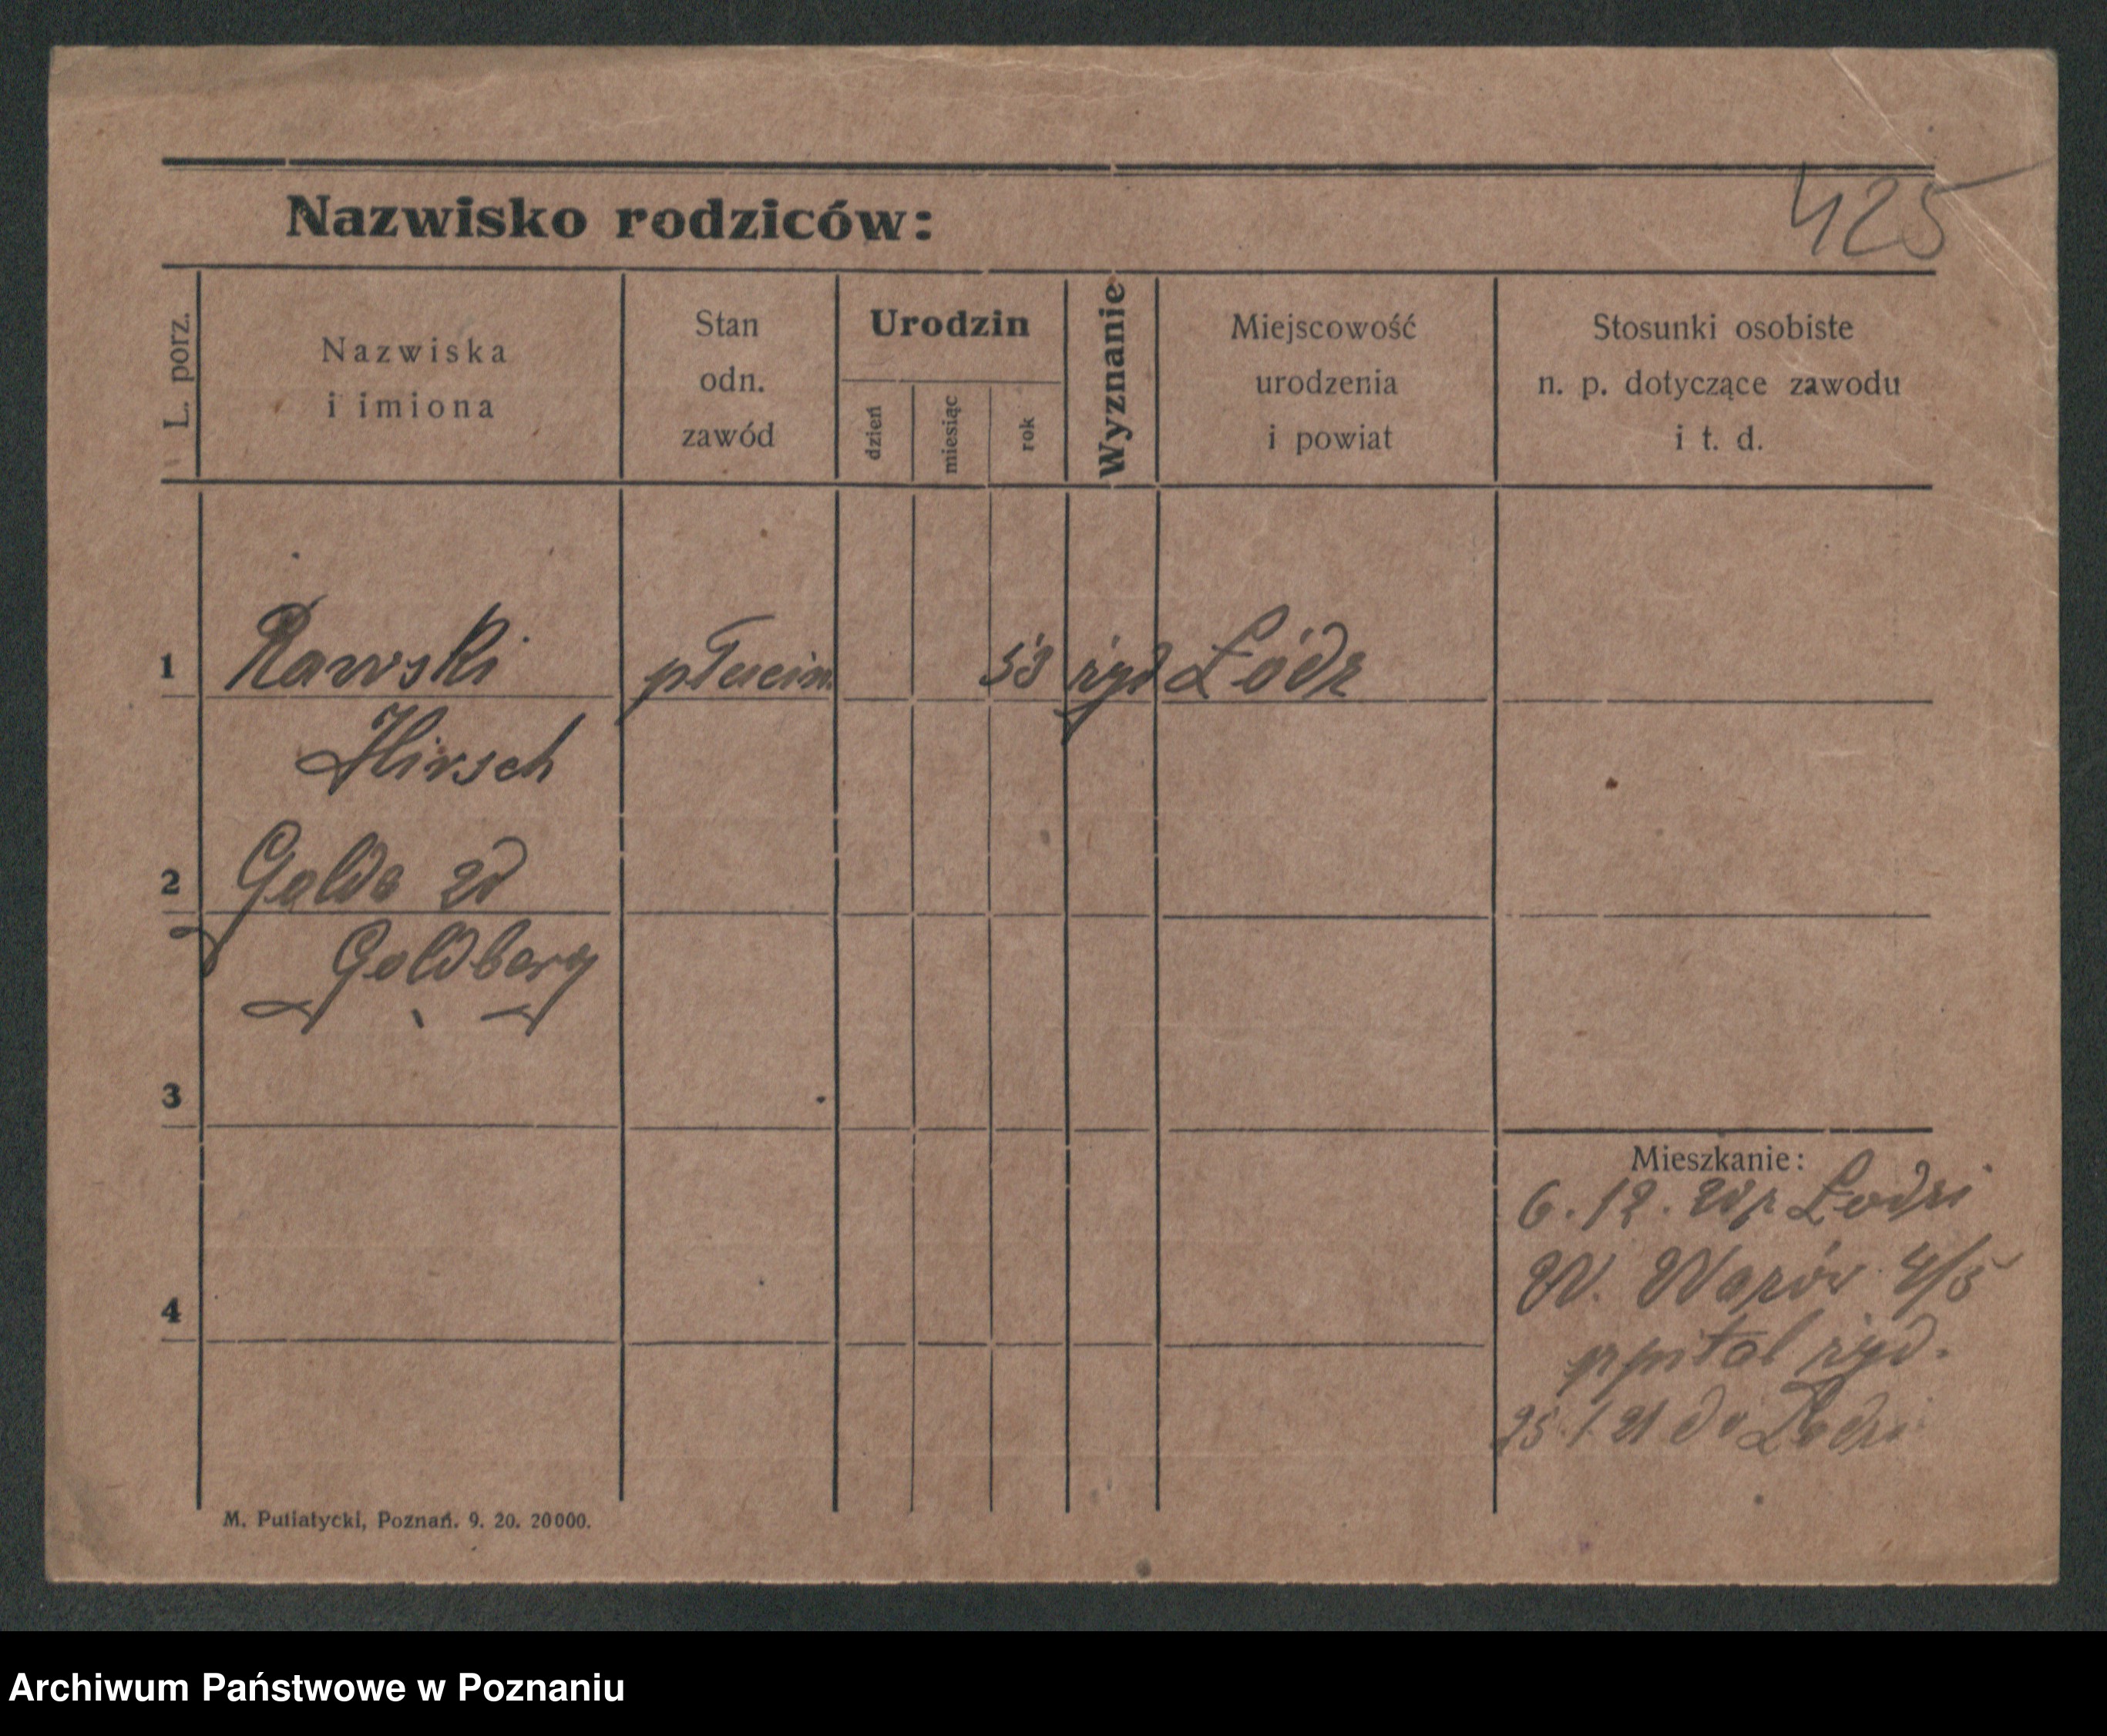 425
Nazwisko rodziców:
L. porz.
Nazwiska
i imiona
Stan
odn.
zawód
Urodzin
dzień
miesiąc
rok
Wyznanie
Miejscowość
urodzenia
i powiat
Stosunki osobiste
n. p. dotyczące zawodu
i t. d.
1 Rawski 53 żyd Łódz
Hirsch
2 Golda
Goldberg
3
Mieszkanie:
6. 12. Łodzi
W. 4/5
szpital żyd.
4
25. 1 21 do Łodzi
M. Putiatycki, Poznań. 9. 20. 20000.
Archiwum Państwowe w Poznaniu